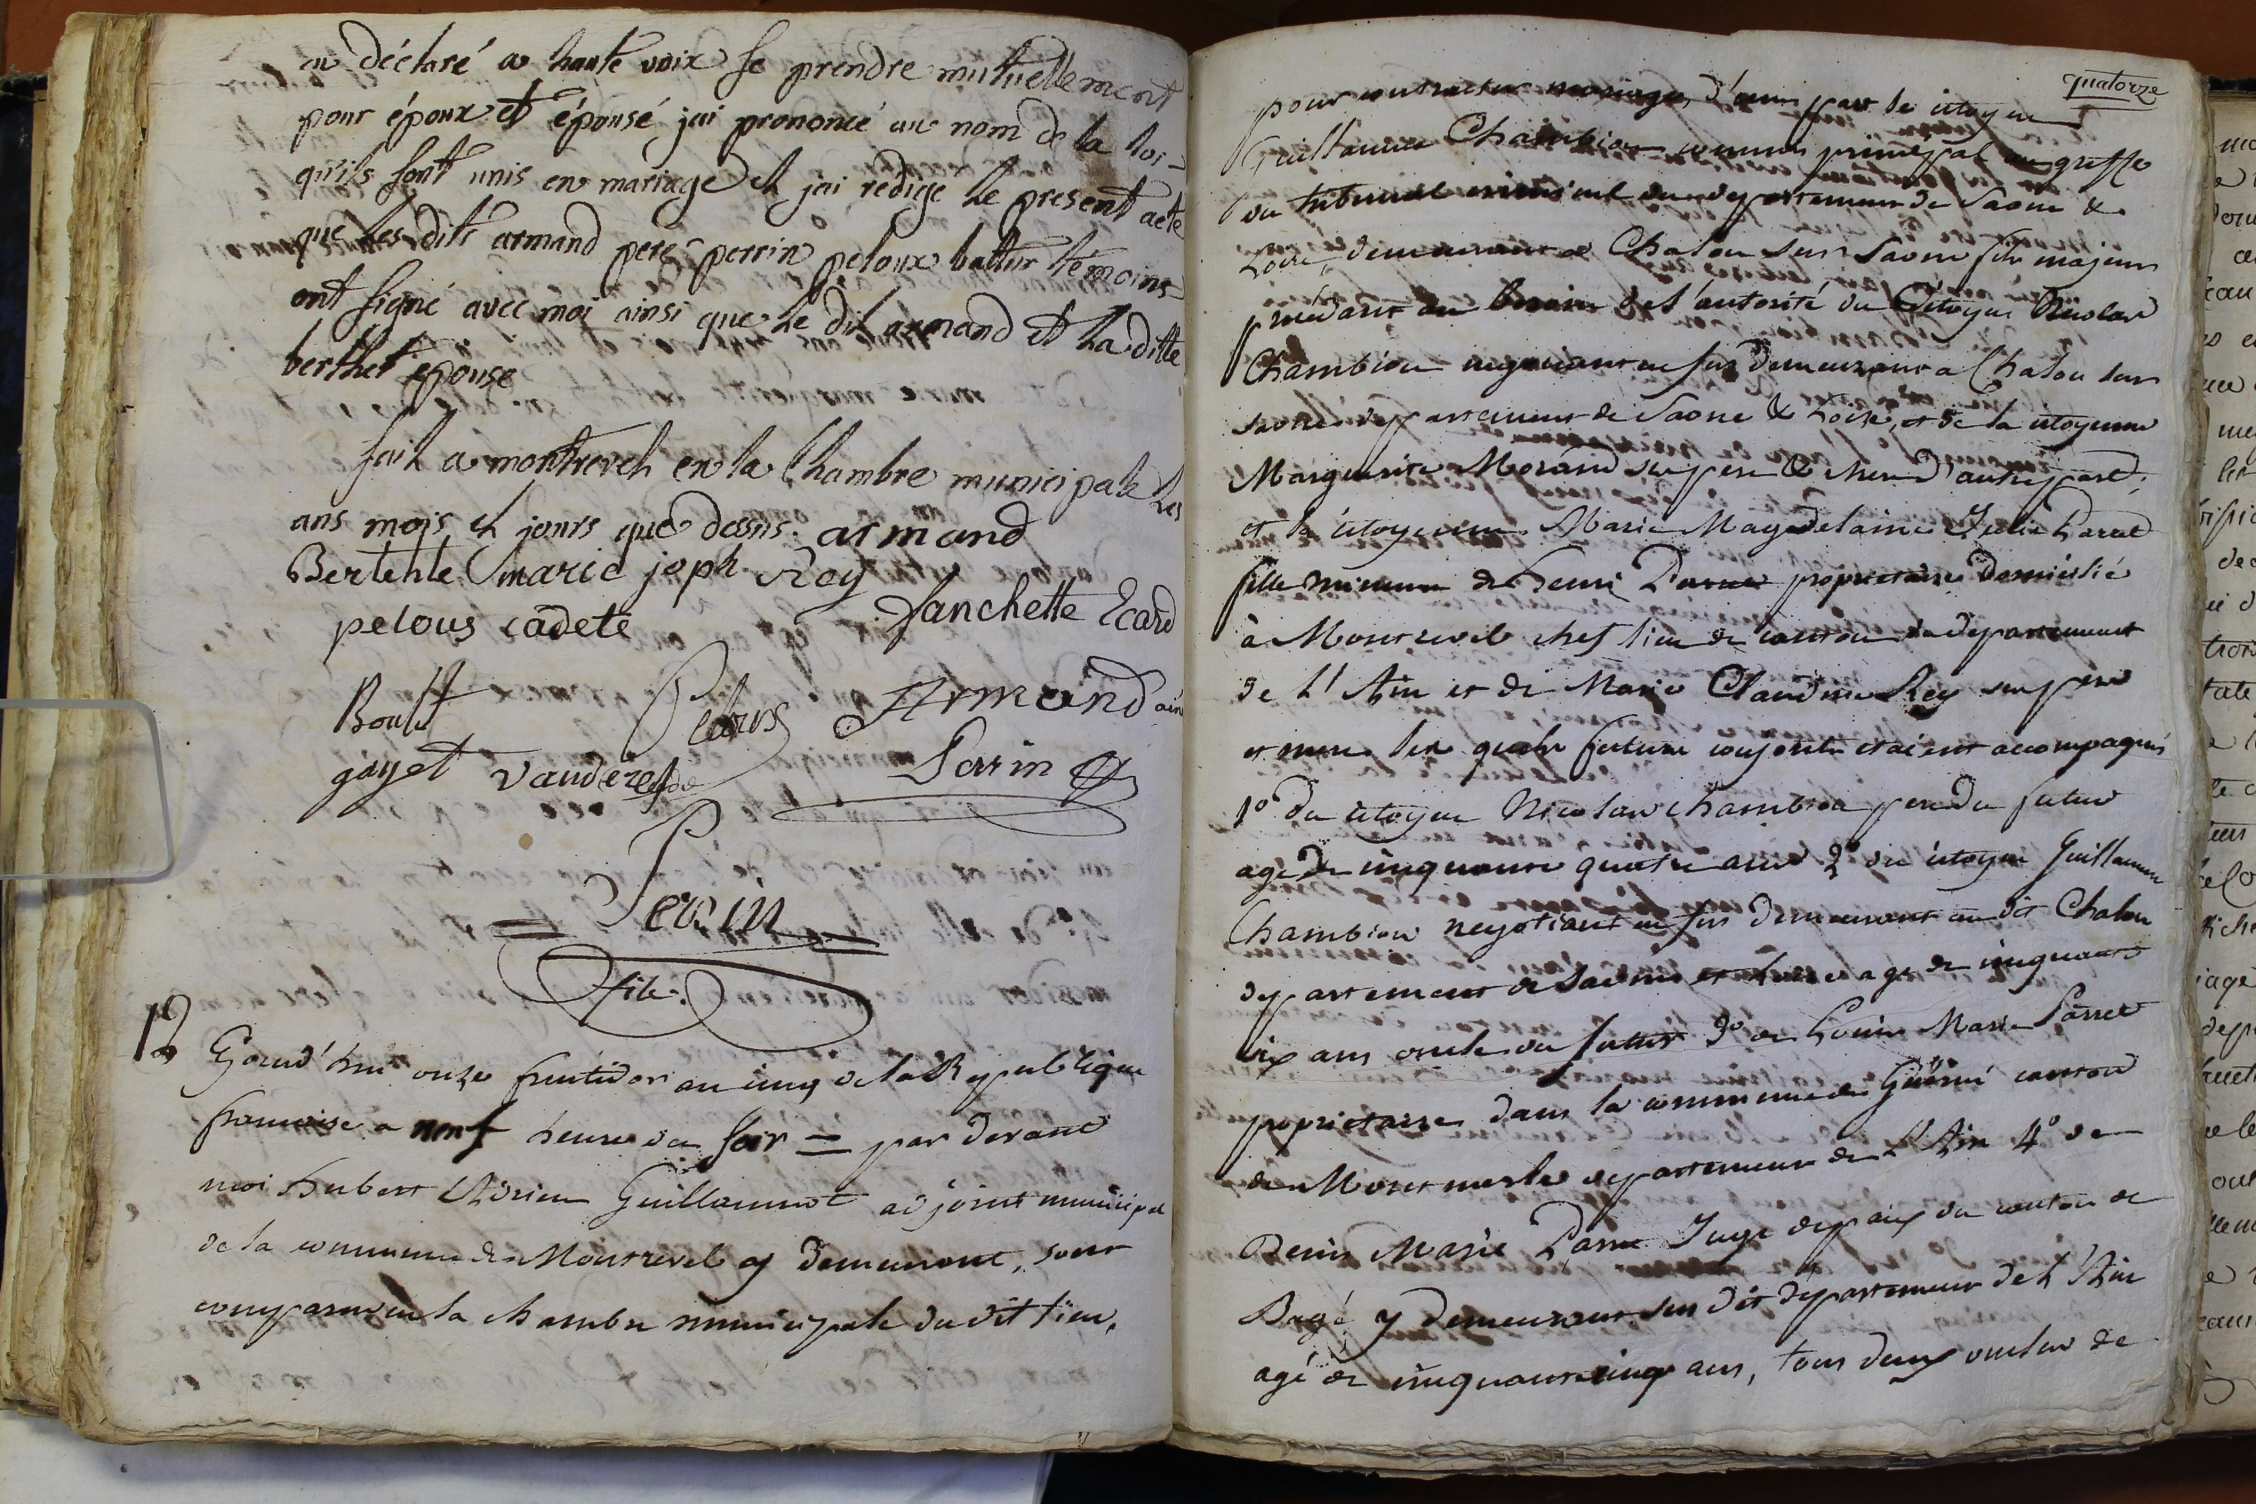 a déclaré a haute voix se prendre mutuellement
pour époux et épousé jai prononcé au nom de la loi
qu'ils sont unis en mariage et jai redige le present acte
que les dits armand pere perrin peloux battur temoins
ont signé avec moi ainsi que le dit armand et la ditte
berthet épouse
fait a montrevel en la Chambre municipale les
ans mois et jours que dessus. armand
Bertehte marie joph Rey
pelous cadete fanchette Ecard
Pelous Armand ainé
gayet Vanderesse Perrin
Perrin
fils.
12 Gourd'hui onze fructidor an cinq de la Republique
francoise a neuf heure du soir = par devant
moi hubert Adrien Guillaumot adjoint municipal
de la commune de Montrevel y demeurant, sont
comparu en la chambre municipale du dit lieu,
quatorze
pour contracter mariage, d'une part le citoyen
Guillaume Chambion commis principal au greffe
du tribunal criminel du departement de Saone &
Loire, demeurant a Chalon sur Saone fils majeur
procédant de l'autorité du Citoyen Nicolas
Chambion negociant en fer demeurant a Chalon sur
saone departement de Saone & Loire, et de la citoyenne
Marguerite Morand ses pere & mere d'autre part,
et la citoyenne Marie Magdelaine Julie Parret
fille mineure de henri Parret proprietaire domicilié
à Montrevel chef lieu de canton du departement
de L'Ain et de Marie Claudine Rey ses pere
et mere les quels futurs conjoints etaient accompagnés
1º du citoyen Nicolas chambion pere du futur
agé de cinquante quatre ans 2º du citoyen Guillaume
Chambion negotiant en fer demeurant au dit Chalon
departement de Saone et Loire agé de cinquante
six ans oncle du futur 3º de Louis Marie Parret
proprietaire dans la commune de canton
de Montmerle departement de L'Ain 4º de
Denis Marie Parret Juge de paix du canton de
Bagé y demeurant sus dit departement de L'Ain
agé de cinquante cinq ans, tous deux oncles de